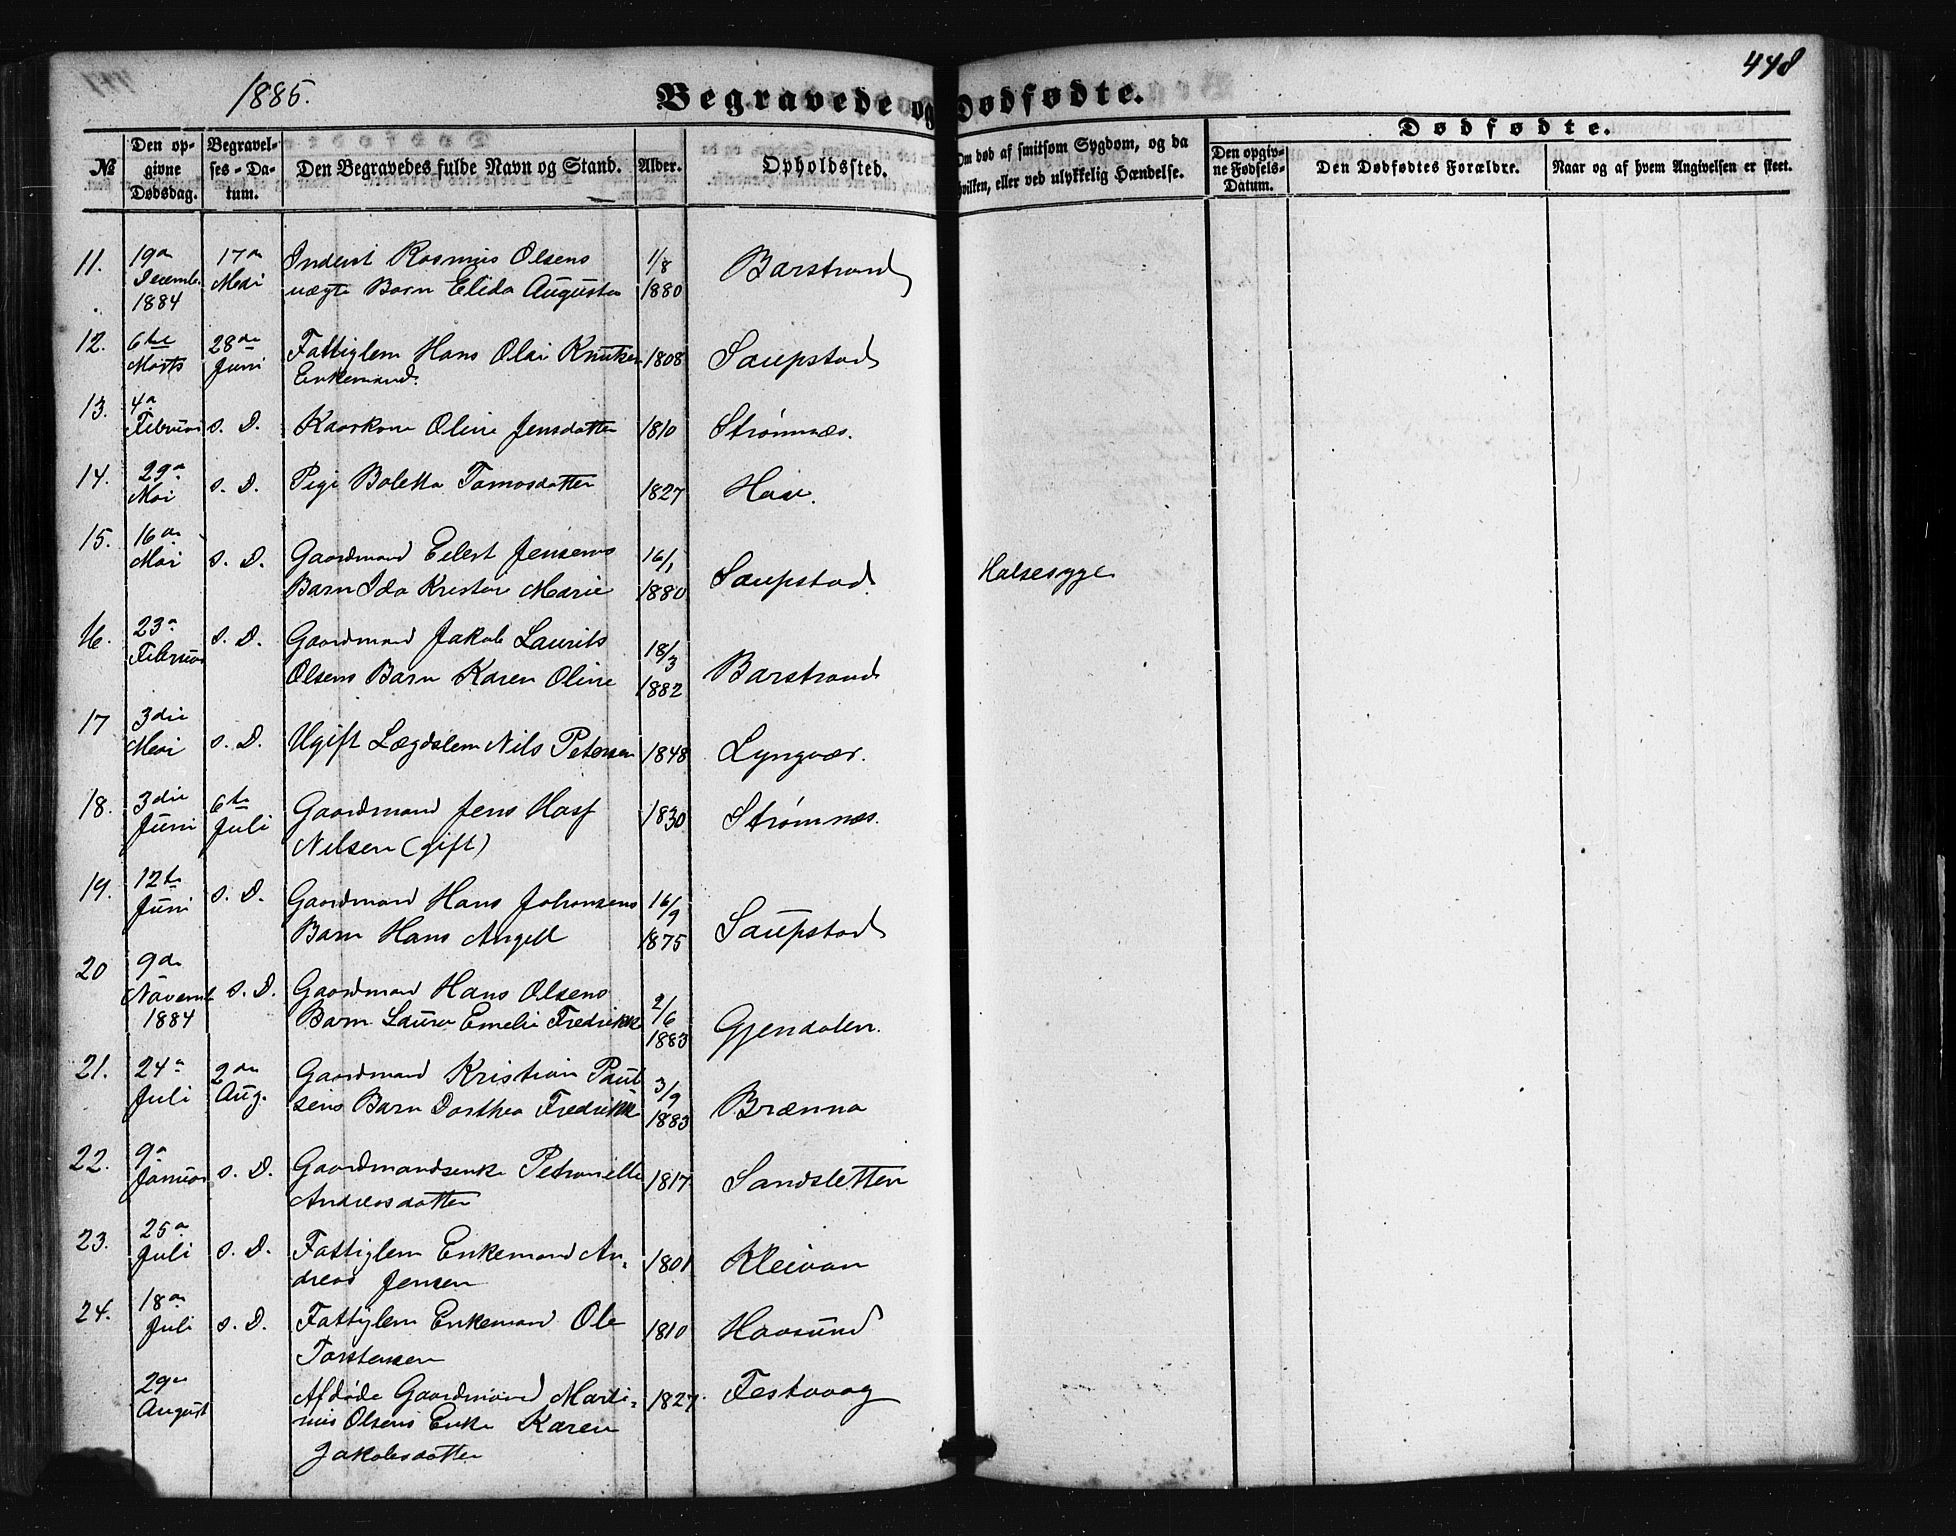 448
1885.
Begravede og Dødfødte.
Dødfødte.
№
Den op-
givne
Dødsdag.
Begravel-
ses-Da-
tum.
Den Begravedes fulde Navn og Stand.
Alder.
Opholdssted.
Om død af smitsom Sygdom, og da
hvilken, eller ved ulykkelig Hændelse.
Den opgiv-
ne Fødsels-
Datum.
Den Dødfødtes Forældre.
Naar og af hvem Angivelsen er skeet.
11. 19de 17de Inderst Rasmus Olsens 1/8 Barstrand
Decemb. Mai uægte Barn Elida Augusta 1880
1884
12. 6te 28de Fattiglem Hans Olai Knutsen 1808 Saupstad
Marts Juni Enkemand.
13. 4de
Februar s. D. Kaarkone Oline Jensdatter 1810 Strømnæs.
14. 29de
Mai s. D. Pige Boletta Tomasdatter 1827
15. 16de
Mai s. D. Gaardmand Eilert Jensens 16/1
Barn Ida Kristine Marie 1880 Saupstad Halsesyge
16. 23de
Februar s. D. Gaardmand Jakob Laurits 18/3
Olsens Barn Karen Oline 1882 Barstrand
17 3die
Mai s. D. Ugift Lægdslem Nils Petersen 1848 Lyngvær.
18. 3die 6te Gaardmand Jens 1830 Strømnæs.
Juni Juli Nilsen (gift)
19. 12te
Juni s. D. Gaardmand Hans Johansens 16/9
Barn Hans Angell 1875 Saupstad
20 9de
Novemb s. D. Gaardmand Hans Olsens 2/6
1884 Barn Laura Emelie Fredrikke 1883 Gjendalen.
21. 24de 2den Gaardmand Kristian Paul 3/9
Juli Aug. sens Barn Dorthea Fredrikke 1883 Brænna
22. 9de
Januar s. D. Gaardmandsenke Petronelle 1817. Sandsletten
Andreasdatter
23. 25de
Juli s. D. Fattiglem Enkemand An- 1801 Kleivan
dreas Jensen
24. 18de
Juli s. D. Fattiglem Enkemand Ole 1810 Havsund
Torstensen
29de
August Afdøde Gaardmand Marti- 1827. Festvaag
nus Olsens Enke Karen
Jakobsdatter